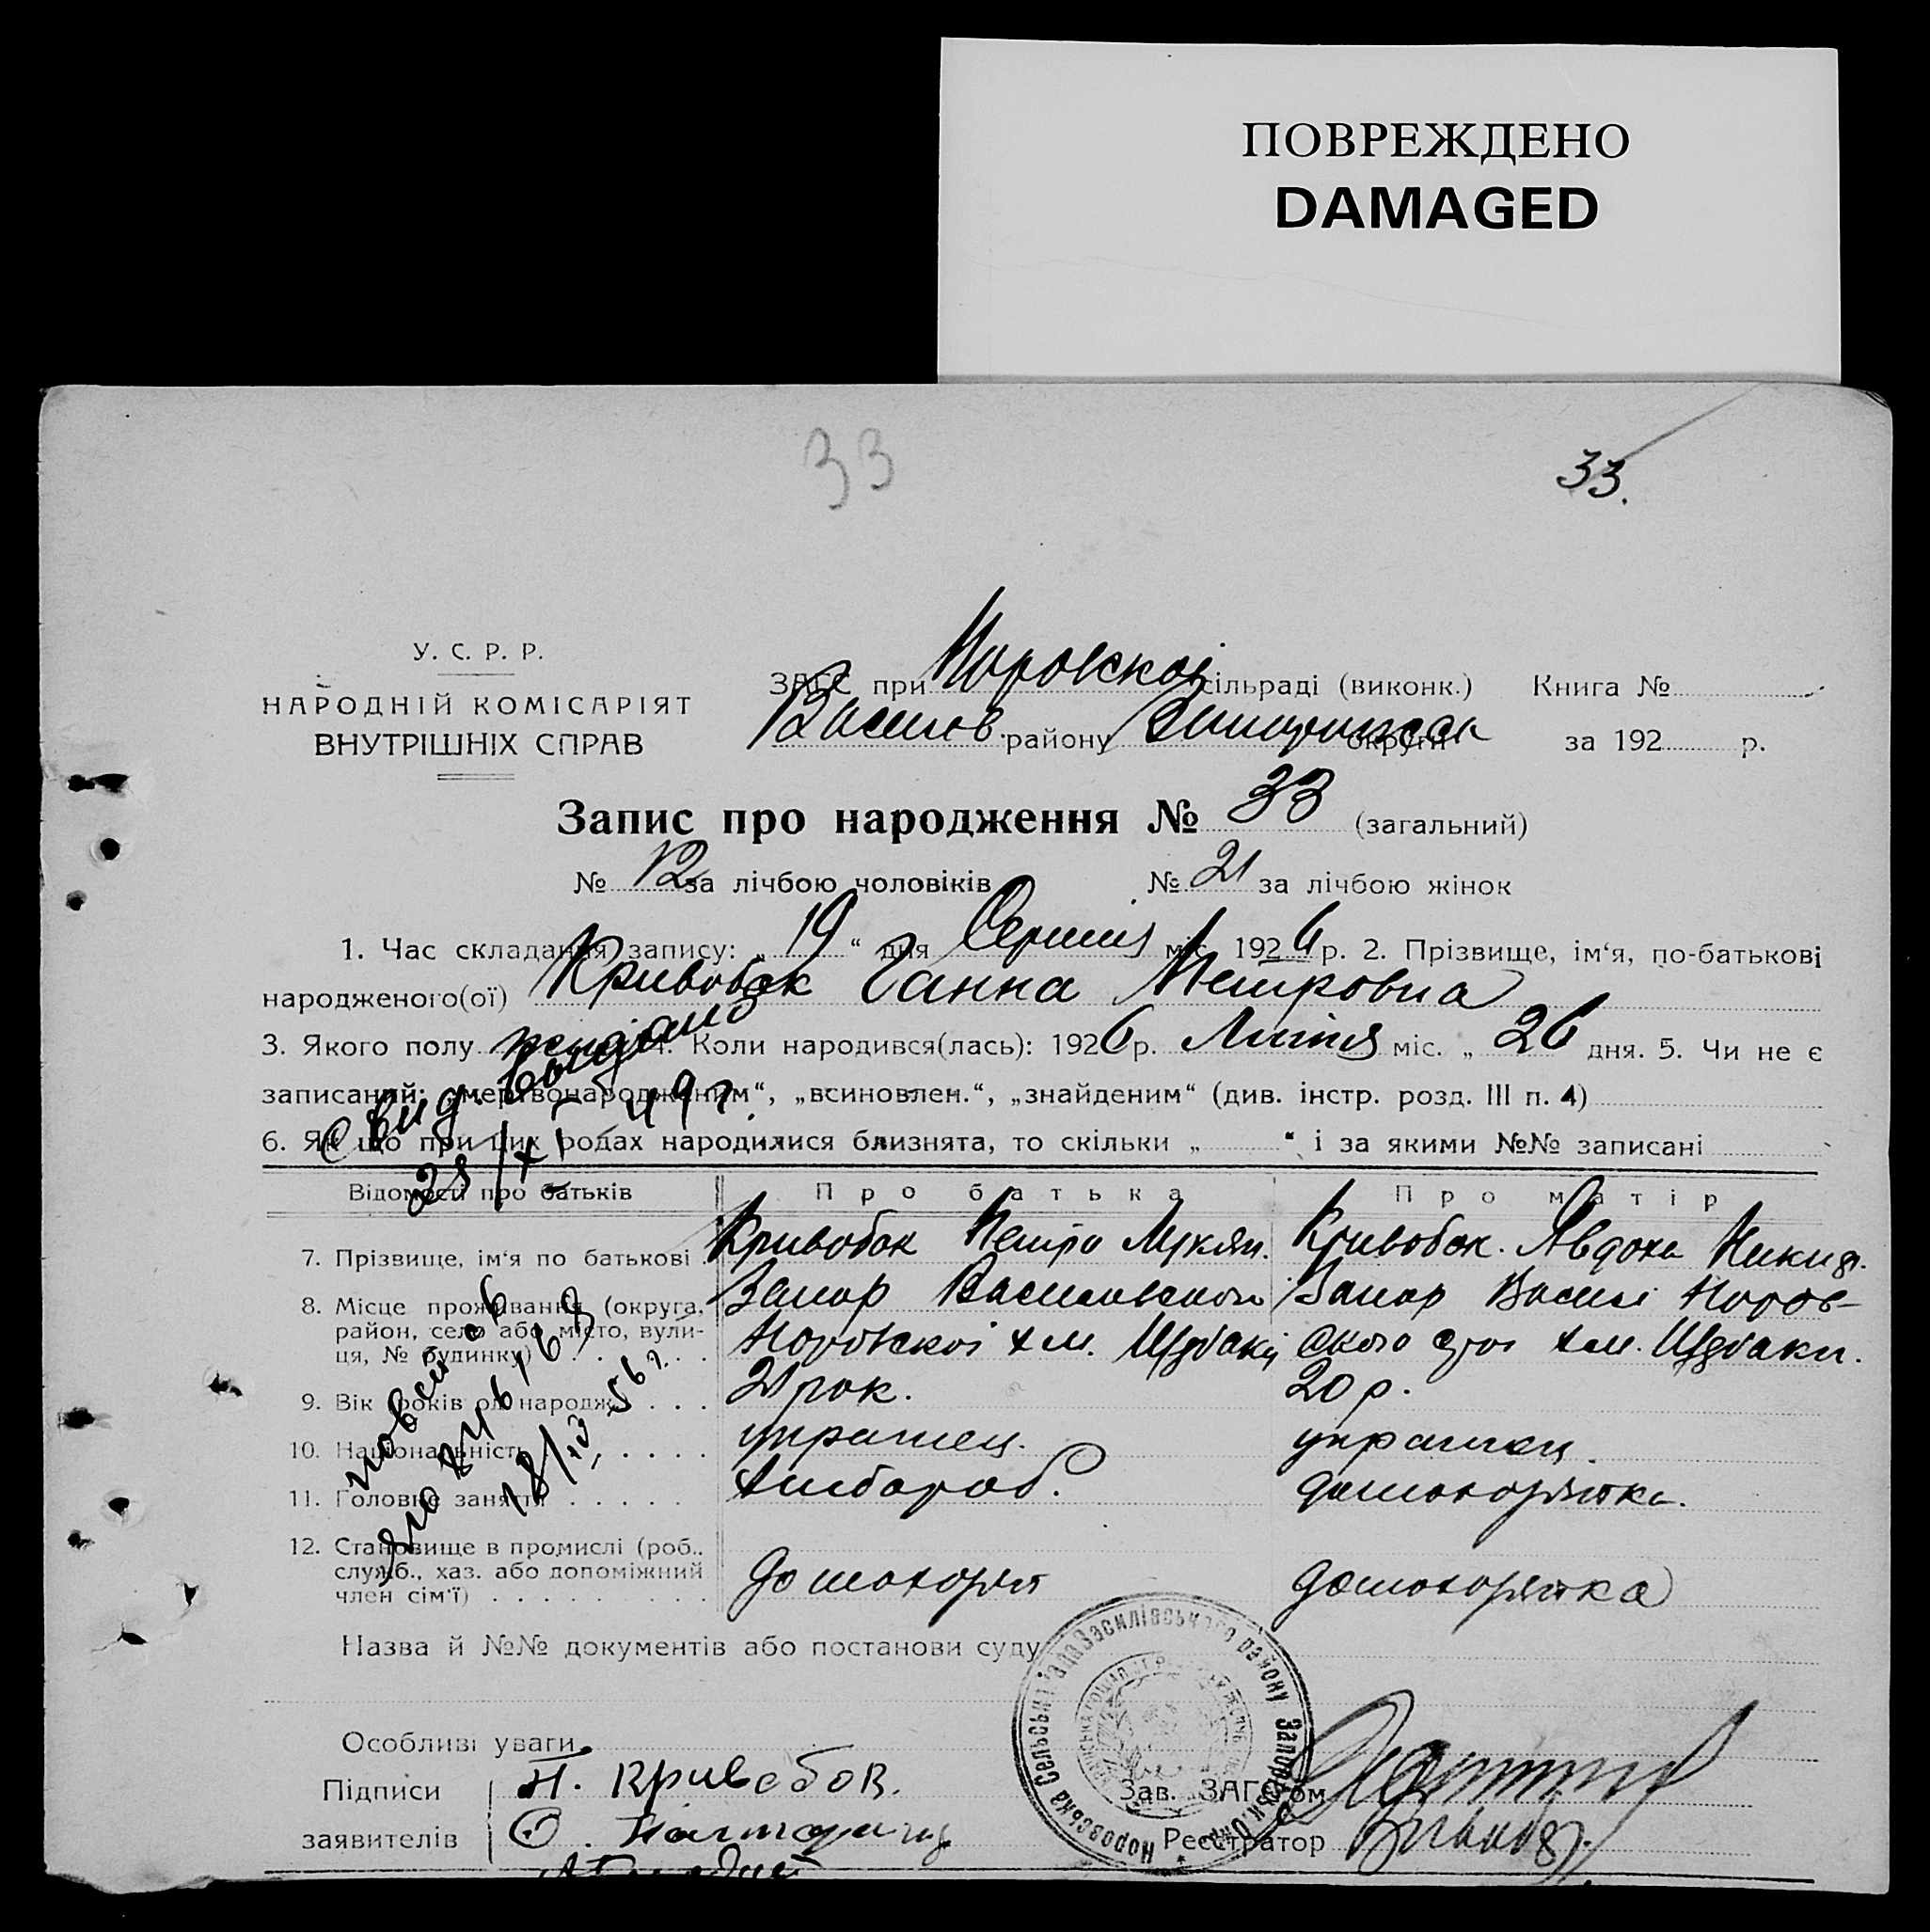 ПОВРЕЖДЕНО
DAMAGED
33
33.
У. С. Р. Р.
НАРОДНІЙ КОМІСАРІЯТ
ВНУТРІШНІХ СПРАВ
ЗАГС при Норовскої сільраді (виконк.) Книга №
Василів. району округи за 192 р.
Запис про народження № 33 (загальний)
№ 12 за лічбою чоловіків № 21 за лічбою жінок
1. Час складання запису: „ 19 “ дня Серпня міс. 1926 р. 2. Прізвище, ім‘я, по-батькові
народженого(ої) Кривобок Ганна Петровна
3. Якого полу 4. Коли народився(лась): 1926 р. Липня міс. „ 26 дня. 5. Чи не є
записаний: „мертвонародженим“, „всиновлен.“, „знайденим“ (див. інстр. розд. III п. 4)
6. Як що при цих родах народилися близнята, то скільки „ “ і за якими №№ записані
Свид. выдано
28/XI-49 г.
Відомості про батьків Про батька Про матір
7. Прізвище, ім‘я по батькові Кривобок Петро Лукян. Кривобок. Авдоха Никид.
8. Місце проживання (округа, Запор Василовского Запор Василі Норов-
район, село або місто, вули- Норовскої х м. Щрбаки ского х м. Щрбаки.
ця, № будинку)
9. Вік (років од народж.) 21 рок. 20 р.
10. Національність украинец. украинец
11. Головне заняття хлібороб. домохоряйка.
12. Становище в промислі (роб.. домохорял домохоряйка
служб., хаз. або допоміжний
член сім‘ї)
повт. об
18/IV-56 г.
Назва й №№ документів або постанови суду
Особливі уваги
Підписи П. Кривобок. Зав. ЗАГС‘ом
заявителів О. Реєстратор
Норовська Сельська Рада Василівського району Запорізьк. Окр.